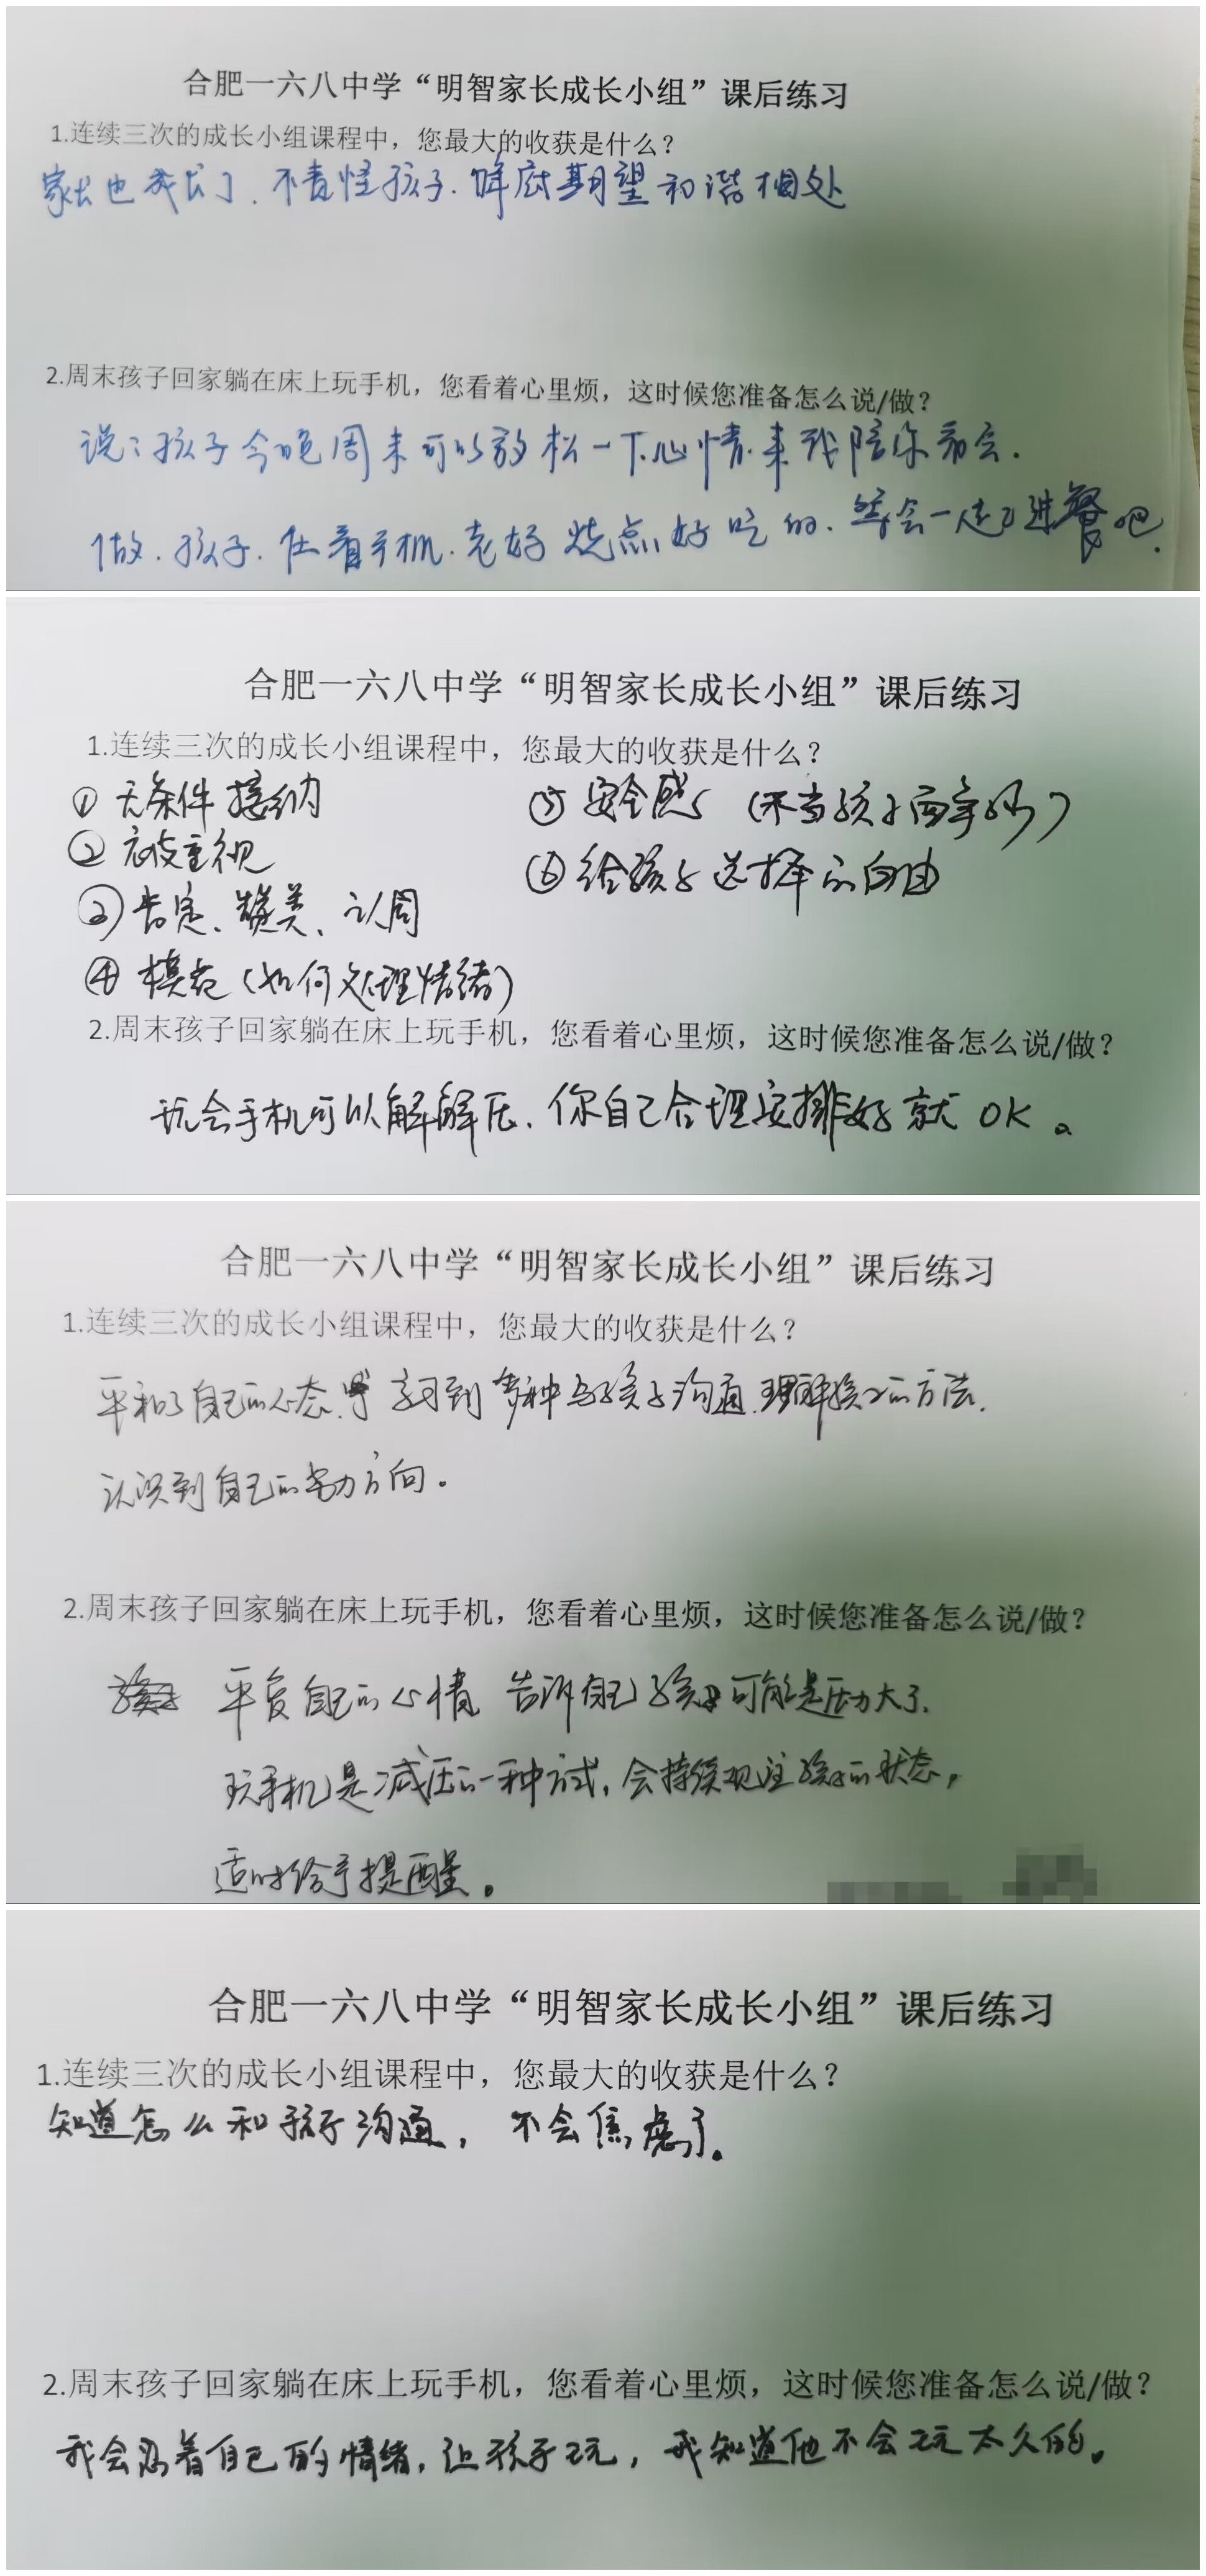 合肥一六八中学“明智家长成长小组”课后练习
1.连续三次的成长小组课程中，您最大的收获是什么？
家长也成长了、不责怪孩子、降底期望和谐相处
2.周末孩子回家躺在床上玩手机，您看着心里烦，这时候您准备怎么说/做？
说：孩子今晚周末可以放松一下心情.来我陪你看会.
做.孩子.在看手机.去好烧点好吃的.等会一起进餐吧.
合肥一六八中学“明智家长成长小组”课后练习
1.连续三次的成长小组课程中，您最大的收获是什么？
①无条件接纳 ⑤安全感（不当孩子面争吵）
②被重视 ⑥给孩子选择的自由
③肯定、赞美、认同
④模范（如何处理情绪）
2.周末孩子回家躺在床上玩手机，您看着心里烦，这时候您准备怎么说/做？
玩会手机可以解解压，你自己合理安排好就OK。
合肥一六八中学“明智家长成长小组”课后练习
1.连续三次的成长小组课程中，您最大的收获是什么？
平和了自己的心态，学习到多种与孩子沟通、理解孩子的方法，
认识到自己的努力方向。
2.周末孩子回家躺在床上玩手机，您看着心里烦，这时候您准备怎么说/做？
平复自己的心情 告诉自己孩子可能是压力大了，
玩手机是减压的一种方式，会持续观注孩子的状态，
适时给予提醒。
合肥一六八中学“明智家长成长小组”课后练习
1.连续三次的成长小组课程中，您最大的收获是什么？
知道怎么和孩子沟通，不会焦虑了。
2.周末孩子回家躺在床上玩手机，您看着心里烦，这时候您准备怎么说/做？
我会忍着自己的情绪，让孩子玩，我知道他不会玩太久的。